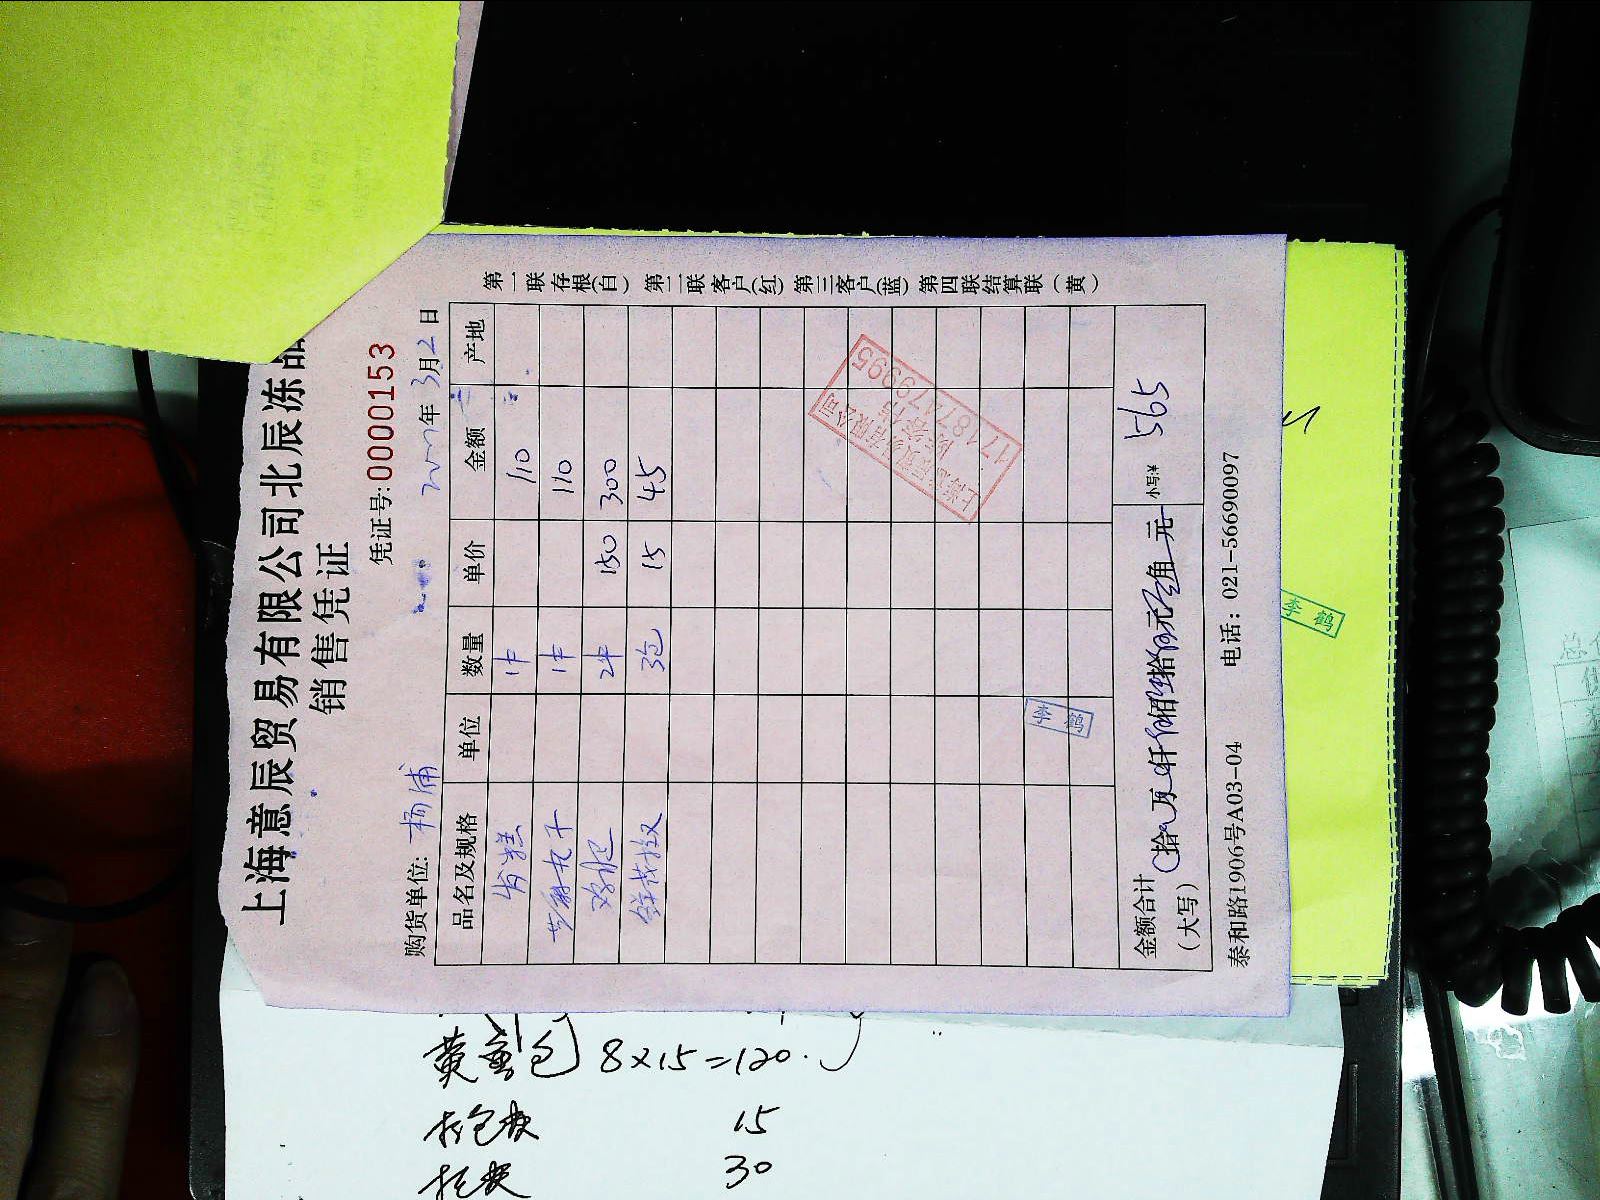 上海意辰贸易有限公司北辰冻品
销售凭证
凭证号:0000153
购货单位: 杨浦 年 3月 2 日
品名及规格 单位 数量 单价 金额 产地
发糕 1件 110
芝麻丸子 1件 110
2件 150 300
3包 15 45
金额合计
(大写) 拾 万 仟 佰 拾 元 角 元 小写:¥ 565
泰和路1906号A03-04 电话: 021-56690097
第一联存根(白) 第二联客户(红) 第三客户(蓝) 第四联结算联(黄)
上海意辰贸易有限公司
17187479995
李鹤
李鹤
黄金包 8×15=120.
15
30